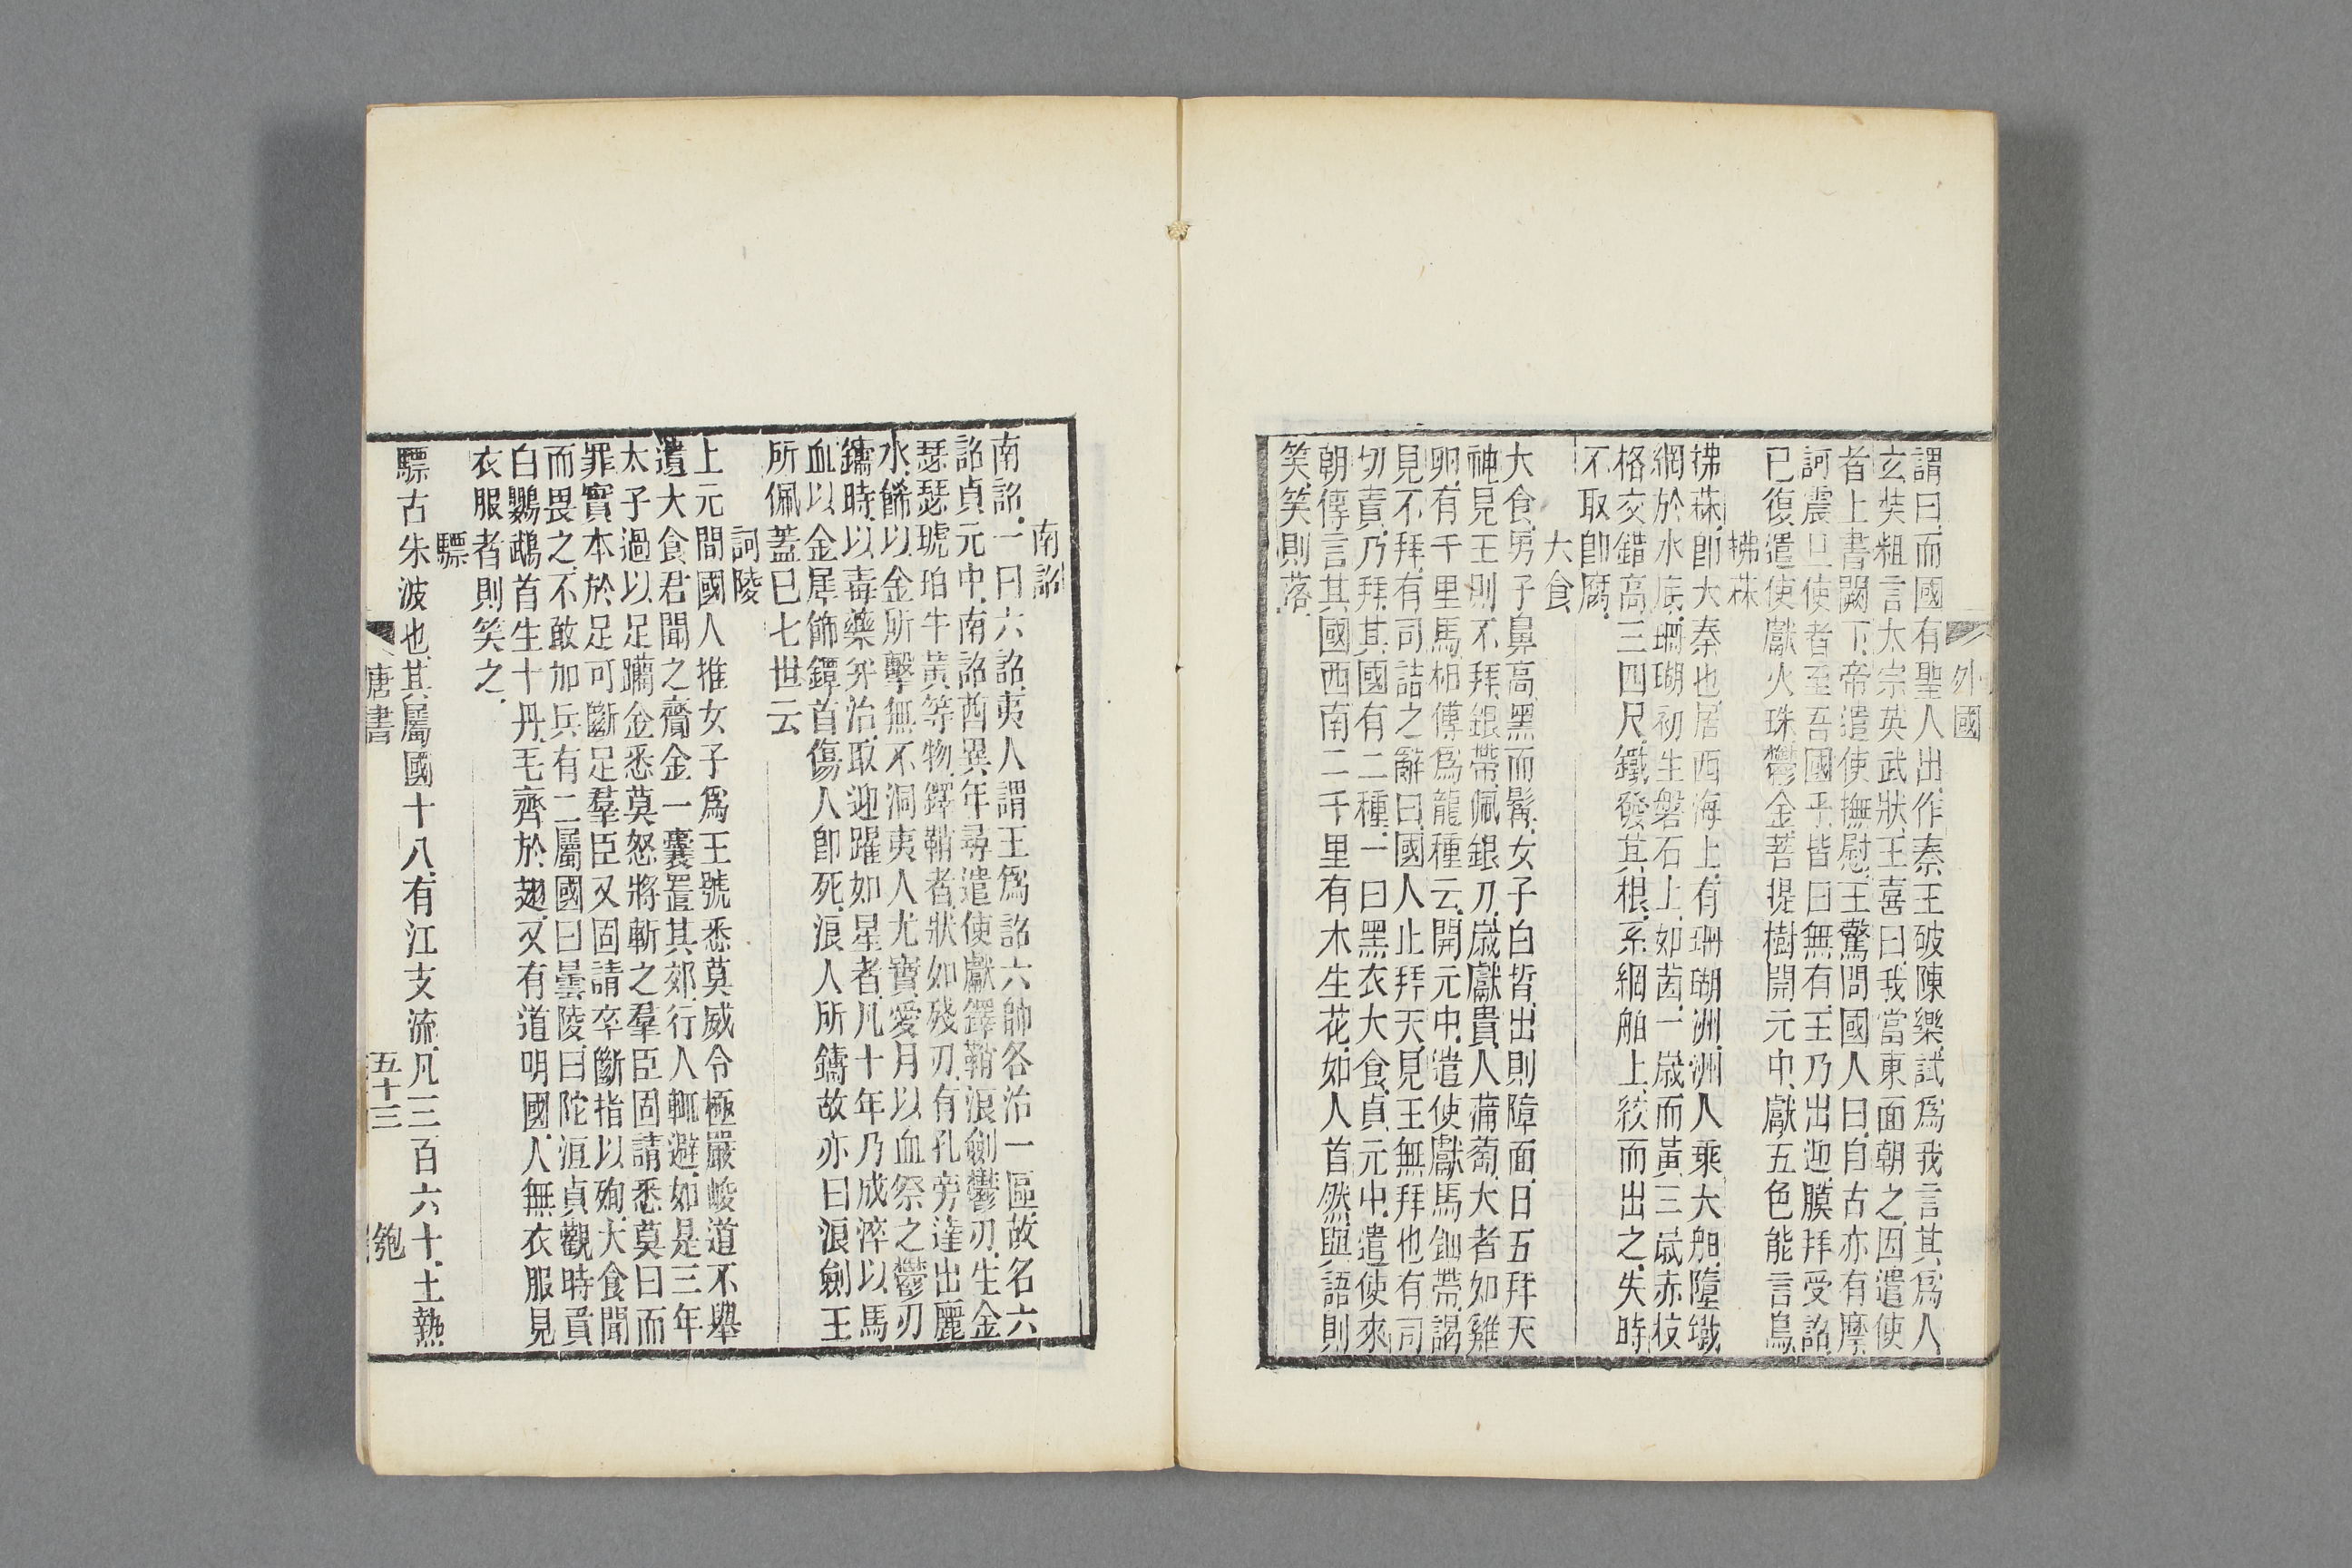 外國
謂曰、而國有聖人出、作秦王破陳樂、試爲我言其爲人、
玄奘粗言太宗英武狀、王喜曰、我當東面朝之、因遣使
者上書闕下、帝遣使撫慰、王驚問國人曰、自古亦有摩
訶震旦使者至吾國乎、皆曰無有、王乃出迎、膜拜受詔、
已復遣使獻火珠鬱金菩提樹、開元中、獻五色能言鳥、
拂菻
拂菻、卽大秦也、居西海上、有珊瑚洲、洲人乘大舶、墮鐵
網於水底、珊瑚初生磐石上、如菌、一歲而黃、三歲赤、枝
格交錯、高三四尺、鐵發其根、系網舶上、絞而出之、失時
不取卽腐、
大食
大食、男子鼻高、黑而髯、女子白皙、出則障面、日五拜天
神、見王則不拜、銀帶、佩銀刀、歲獻貴人蒲萄、大者如雞
卵、有千里馬、相傳爲龍種云、開元中、遣使獻馬鈿帶、謁
見不拜、有司詰之、辭曰、國人止拜天、見王無拜也、有司
切責、乃拜、其國有二種、一曰黑衣大食、貞元中、遣使來
朝、傳言其國西南二千里有木生花、如人首然、與語則
笑、笑則落、
南詔
南詔、一曰六詔、夷人謂王爲詔、六帥各治一區、故名六
詔、貞元中、南詔酋異年尋遣使獻鐸鞘浪劍鬱刃、生金
瑟瑟琥珀牛黃等物、鐸鞘者、狀如殘刃、有孔旁達、出麗
水、飾以金、所擊無不洞、夷人尤寶愛、月以血祭之、鬱刃
鑄時、以毒藥幷治、取迎躍如星者、凡十年乃成、淬以馬
血、以金犀飾鐔首、傷人卽死、浪人所鑄、故亦曰浪劍、王
所佩蓋已七世云
訶陵
上元間國人推女子爲王號悉莫威令極嚴峻道不舉
遺大食君聞之齎金一囊置其郊、行人輒避、如是三年
太子過以足躪金悉莫怒將斬之羣臣固請悉莫曰而
罪實本於足可斷足羣臣又固請卒斷指以殉、大食聞
而畏之、不敢加兵、有二屬國曰曇陵、曰陀洹、貞觀時貢
白鸚鵡首生十丹、毛齊於翅、又有道明國、人無衣服見
衣服者則笑之、
驃
驃古朱波也、其屬國十八、有江支流、凡三百六十、土熱
唐書 五十三 匏